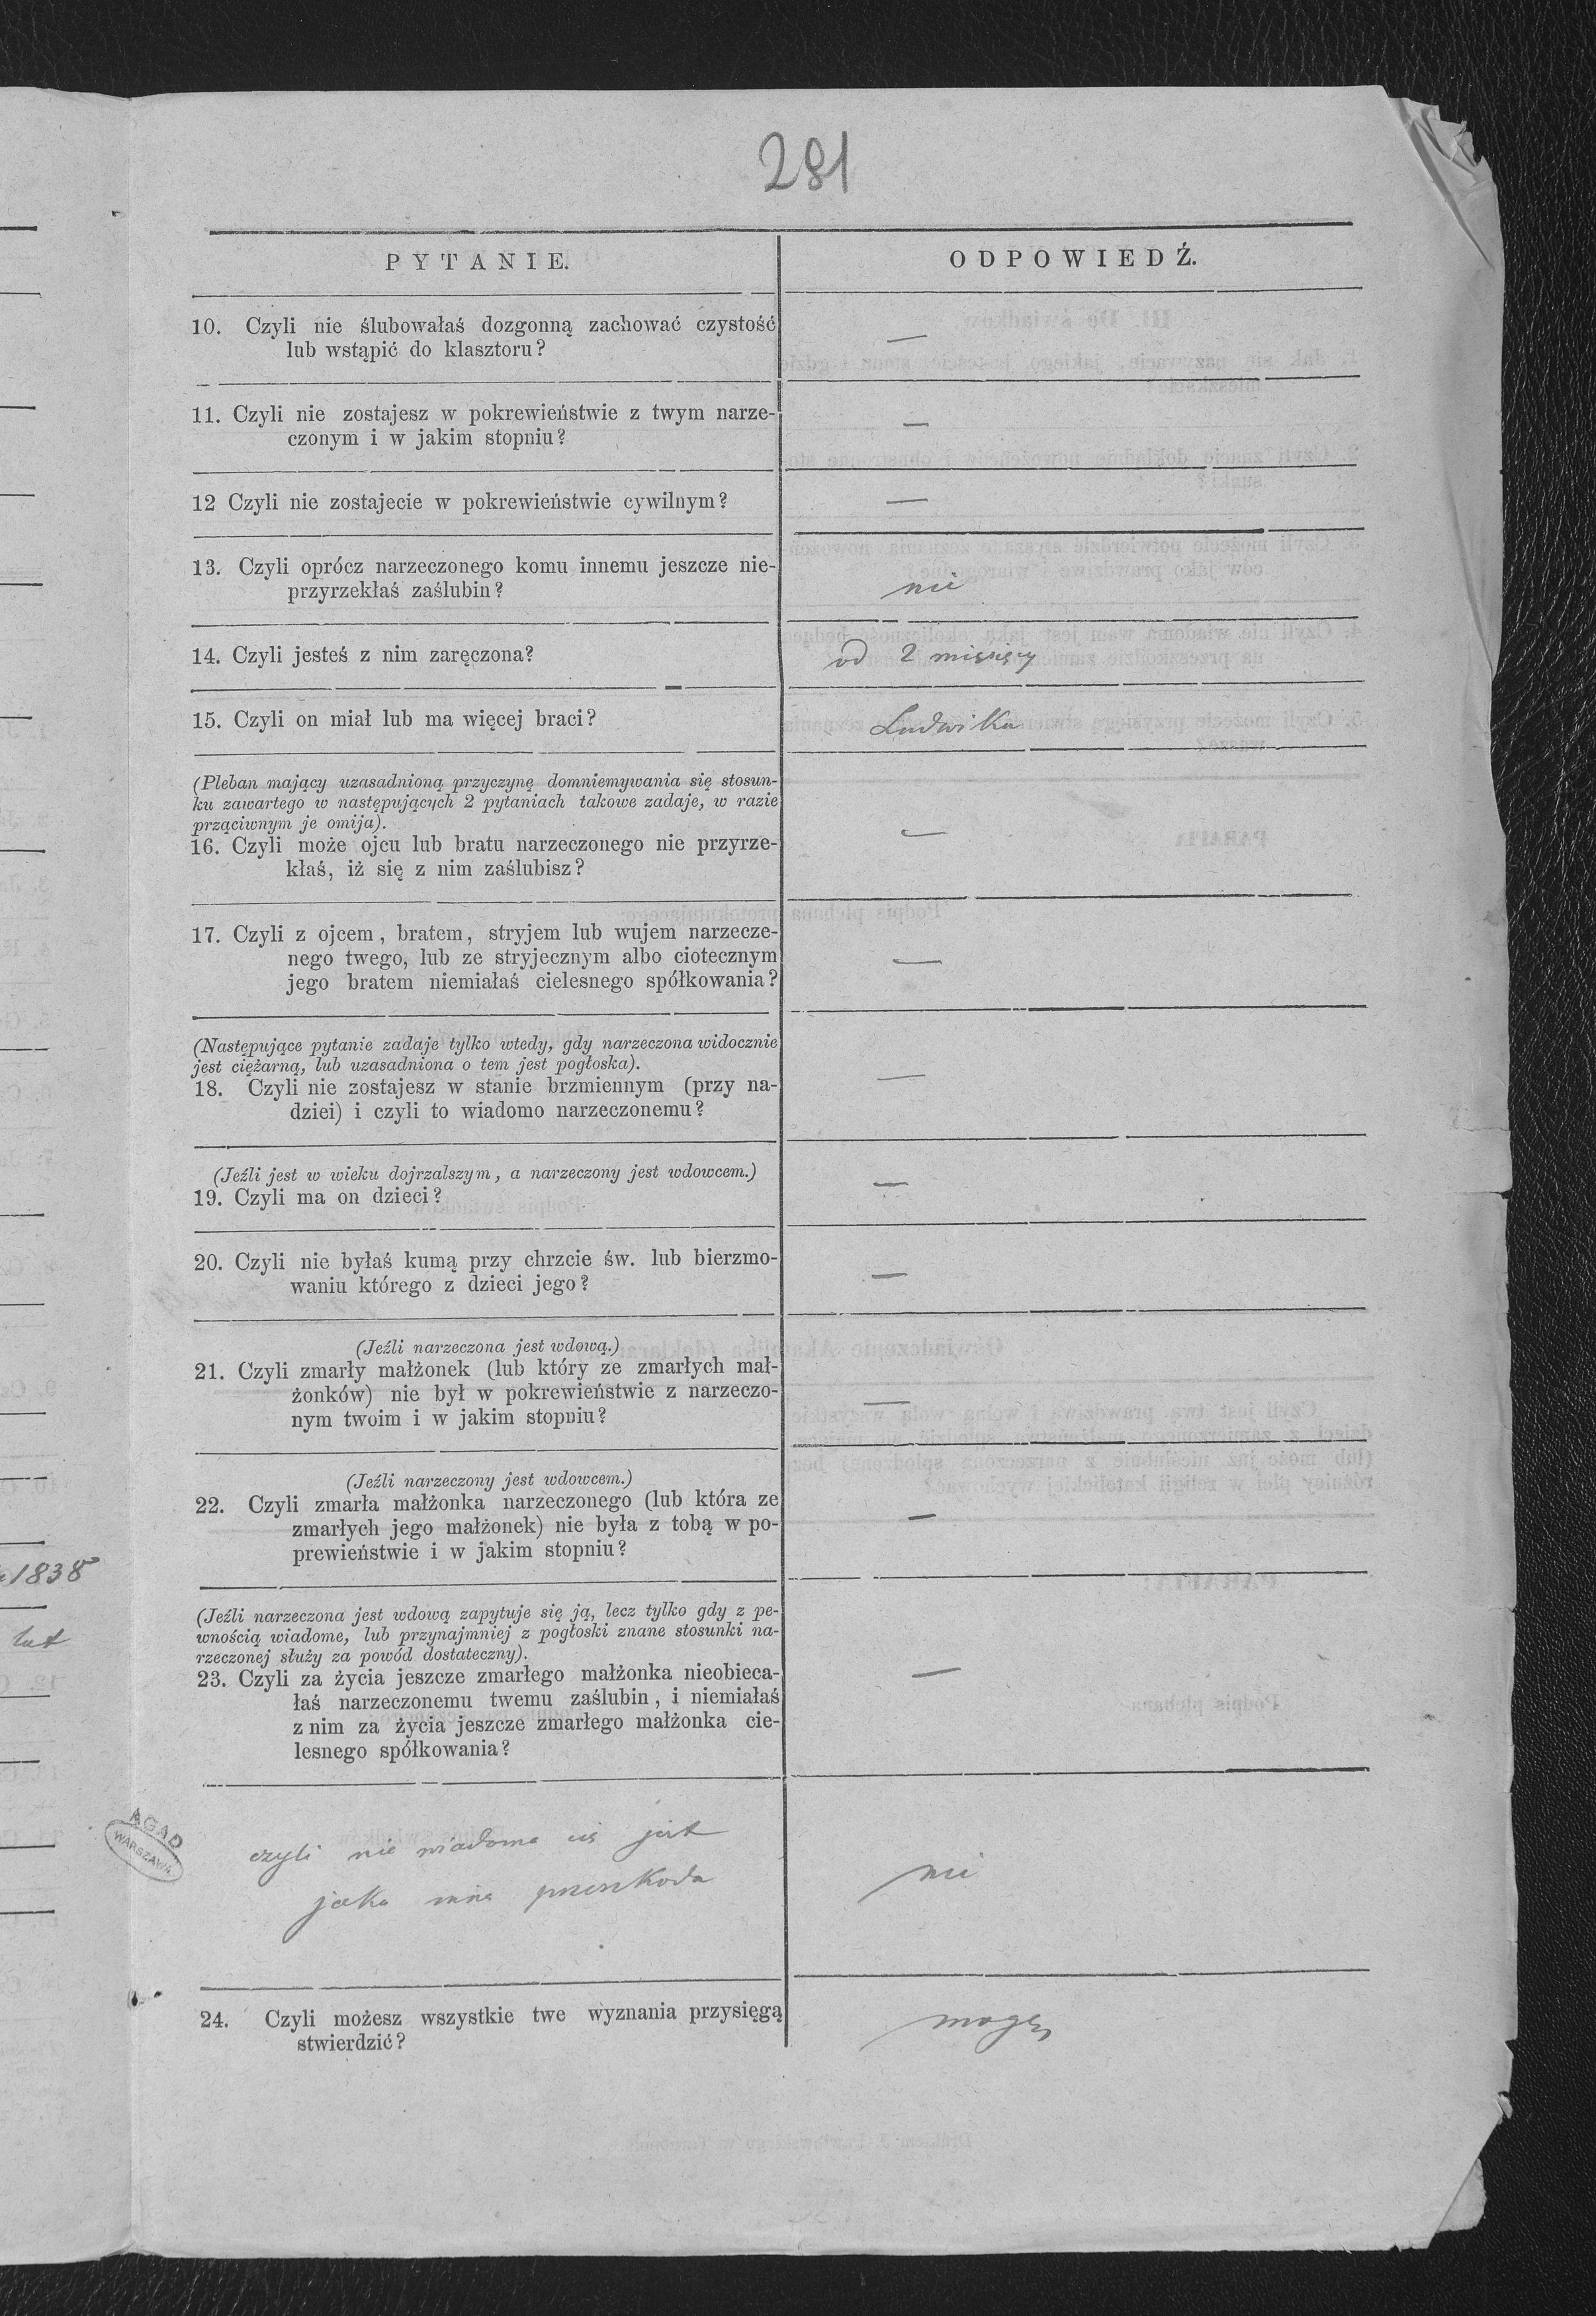 281
PYTANIE.
ODPOWIEDŹ.
10. Czyli nie ślubowałaś dozgonną zachować czystość
lub wstąpić do klasztoru?
—
11. Czyli nie zostajesz w pokrewieństwie z twym narze-
czonym i w jakim stopniu?
—
12 Czyli nie zostajecie w pokrewieństwie cywilnym?
—
13. Czyli oprócz narzeczonego komu innemu jeszcze nie-
przyrzekłaś zaślubin?
nie
14. Czyli jesteś z nim zaręczona?
od 2 miesięcy
15. Czyli on miał lub ma więcej braci?
Ludwika
(Pleban mający uzasadnioną przyczynę domniemywania się stosun-
ku zawartego w następujących 2 pytaniach takowe zadaje, w razie
prząciwnym je omija).
16. Czyli może ojcu lub bratu narzeczonego nie przyrze-
kłaś, iż się z nim zaślubisz?
—
17. Czyli z ojcem, bratem, stryjem lub wujem narzecze-
nego twego, lub ze stryjecznym albo ciotecznym
jego bratem niemiałaś cielesnego spółkowania?
—
(Następujące pytanie zadaje tylko wtedy, gdy narzeczona widocznie
jest ciężarną, lub uzasadniona o tem jest pogłoska).
18. Czyli nie zostajesz w stanie brzmiennym (przy na-
dziei) i czyli to wiadomo narzeczonemu?
—
(Jeźli jest w wieku dojrzalszym, a narzeczony jest wdowcem.)
19. Czyli ma on dzieci?
—
20. Czyli nie byłaś kumą przy chrzcie św. lub bierzmo-
waniu którego z dzieci jego?
—
(Jeźli narzeczona jest wdową.)
21. Czyli zmarły małżonek (lub który ze zmarłych mał-
żonków) nie był w pokrewieństwie z narzeczo-
nym twoim i w jakim stopniu?
—
(Jeźli narzeczony jest wdowcem.)
22. Czyli zmarła małżonka narzeczonego (lub która ze
zmarłych jego małżonek) nie była z tobą w po-
prewieństwie i w jakim stopniu?
—
1838
lat
(Jeźli narzeczona jest wdową zapytuje się ją, lecz tylko gdy z pe-
wnością wiadome, lub przynajmniej z pogłoski znane stosunki na-
rzeczonej służy za powód dostateczny).
23. Czyli za życia jeszcze zmarłego małżonka nieobieca-
łaś narzeczonemu twemu zaślubin, i niemiałaś
z nim za życia jeszcze zmarłego małżonka cie-
lesnego spółkowania?
—
AGAD
WARSZAWA
czyli nie wiadoma ci jest
jaka inna przeszkoda
nie
24. Czyli możesz wszystkie twe wyznania przysięgą
stwierdzić?
mogę